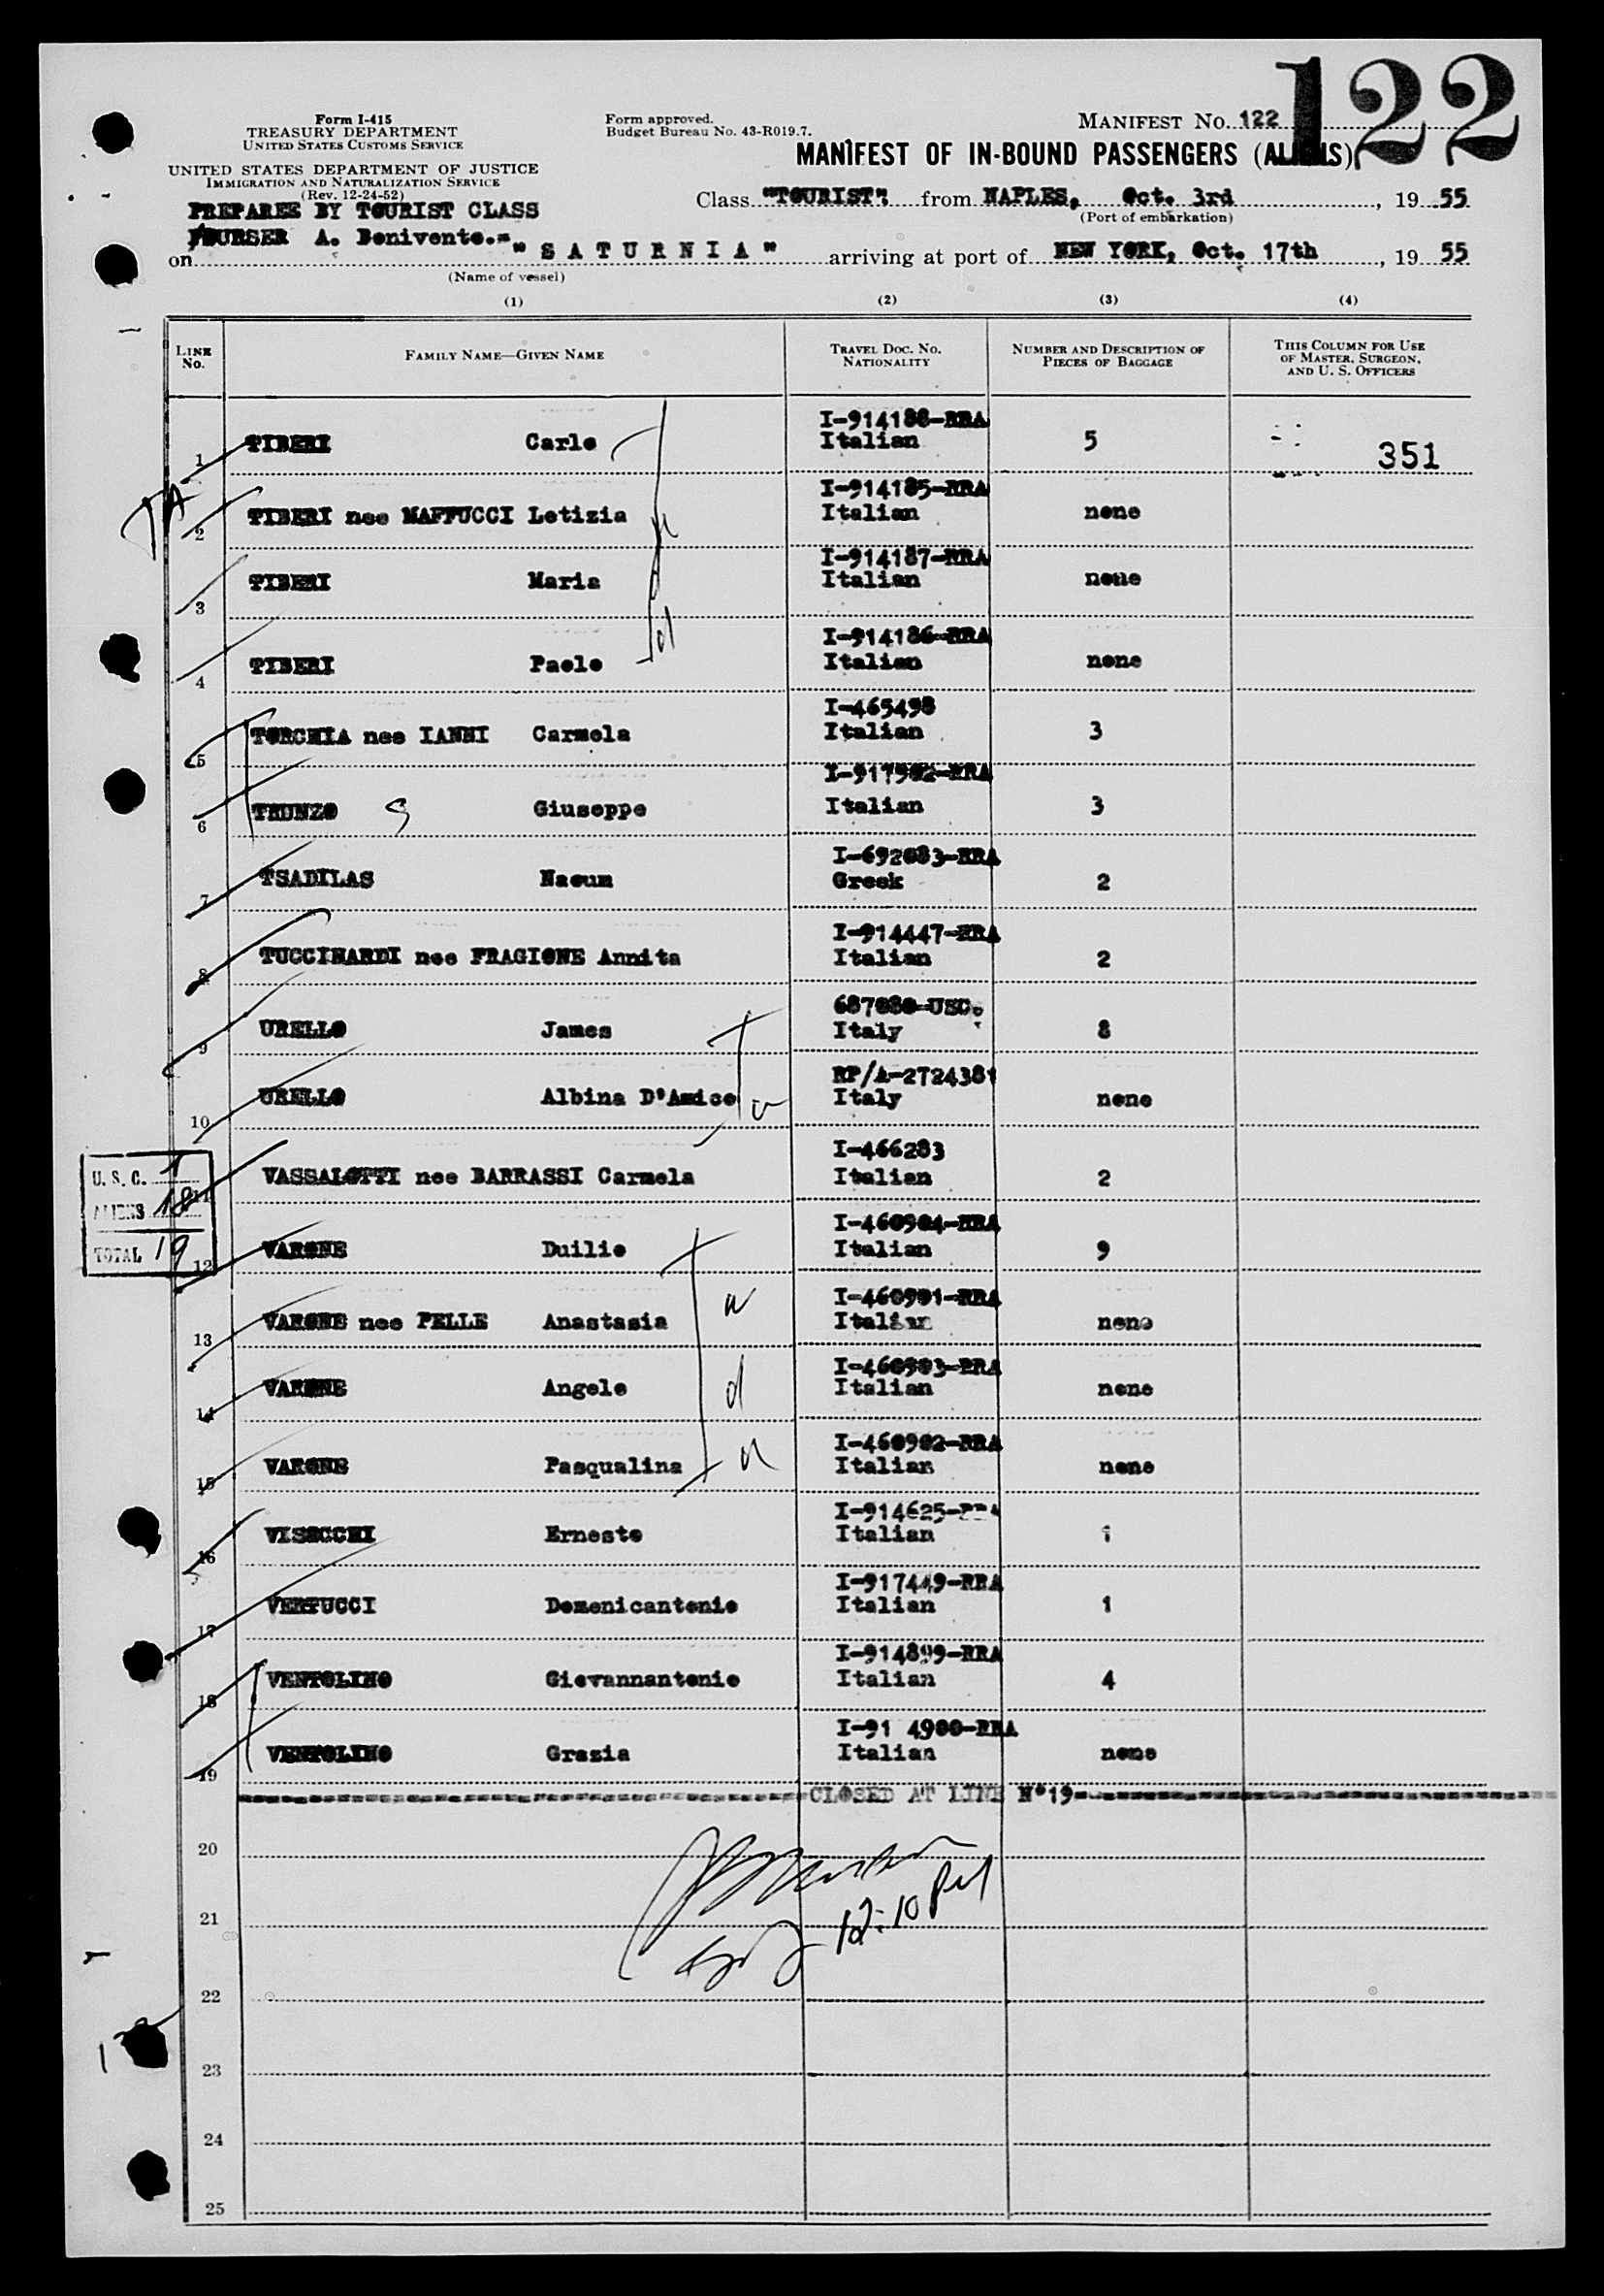 122
Form I-415
TREASURY DEPARTMENT
UNITED STATES CUSTOMS SERVICE
UNITED STATES DEPARTMENT OF JUSTICE
IMMIGRATION AND NATURALIZATION SERVICE
(Rev. 12-24-52)
Form approved.
Budget Bureau No. 43-R019.7.
MANIFEST NO. 122
MANIFEST OF IN-BOUND PASSENGERS (ALIENS)
PREPARED BY TOURIST CLASS
PURSER A. Benivento.-
Class "TOURIST". from NAPLES, Oct. 3rd, 1955
(Port of embarkation)
on "SATURNIA" arriving at port of NEW YORK, Oct. 17th, 1955
(Name of vessel)
(1) (2) (3) (4)
LINE No. FAMILY NAME—GIVEN NAME TRAVEL DOC. NO. NATIONALITY NUMBER AND DESCRIPTION OF PIECES OF BAGGAGE THIS COLUMN FOR USE OF MASTER, SURGEON, AND U. S. OFFICERS
1 TIBERI Carlo I-914188-RRA Italian 5 351
TA
2 TIBERI nee MAFFUCCI Letizia I-914185-RRA Italian none
3 TIBERI Maria I-914187-RRA Italian none
4 TIBERI Paolo I-914186-RRA Italian none
5 TORCHIA nee IANNI Carmela I-465498 Italian 3
6 TRUNZO S Giuseppe I-917502-RRA Italian 3
7 TSADILAS Naoum I-692083-RRA Greek 2
8 TUCCINARDI nee FRAGIONE Annita I-914447-RRA Italian 2
9 URELLO James 687080-USC. Italy 8
10 URELLO Albina D'Amico RP/A-2724381 Italy none
11 VASSALOTTI nee BARRASSI Carmela I-466283 Italian 2
U. S. C. 1
ALIENS 18
TOTAL 19
12 VARONE Duilio I-460904-RRA Italian 9
13 VARONE nee PELLE Anastasia I-460901-RRA Italian none
14 VARONE Angelo I-460903-RRA Italian none
15 VARONE Pasqualina I-460902-RRA Italian none
16 VISOCCHI Ernesto I-914625-RRA Italian 1
17 VERTUCCI Domenicantonio I-917449-RRA Italian 1
18 VENTOLINO Giovannantonio I-914899-RRA Italian 4
19 VENTOLINO Grazia I-91 4900-RRA Italian none
CLOSED AT LINE N°19
20
12:10 PM
21
22
23
24
25